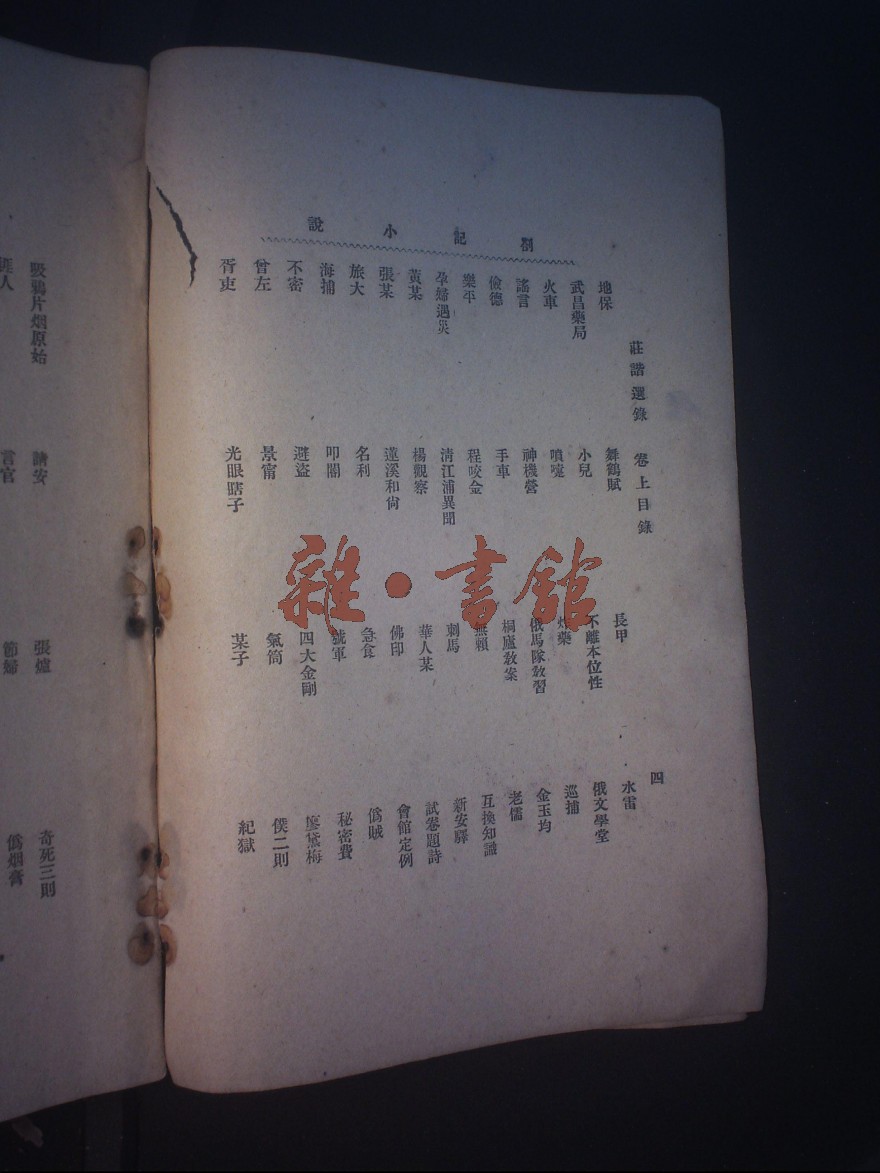 劄記小說
莊諧選錄 卷上目錄 四
地保 舞鶴賦 長甲 水雷
武昌藥局 小兒 不離本位性 俄文學堂
火車 噴嚏 炸藥 巡捕
謠言 神機營 俄馬隊教習 金玉均
儉德 手車 桐廬教案 老儒
樂平 程咬金 無賴 互換知識
孕婦遇災 清江浦異聞 刺馬 新安驛
黃某 楊觀察 華人某 試卷題詩
張某 蓮溪和尙 佛印 會館定例
旅大 名利 急食 僞賊
海捕 號軍 秘密費
不密 避盜 四大金剛 廖黛梅
曾左 景甯 氣筒 僕二則
胥吏 光眼瞎子 某子 紀獄
吸鴉片烟原始 請安 張爐 奇死三則
言官 節婦 僞烟膏
雜·書館